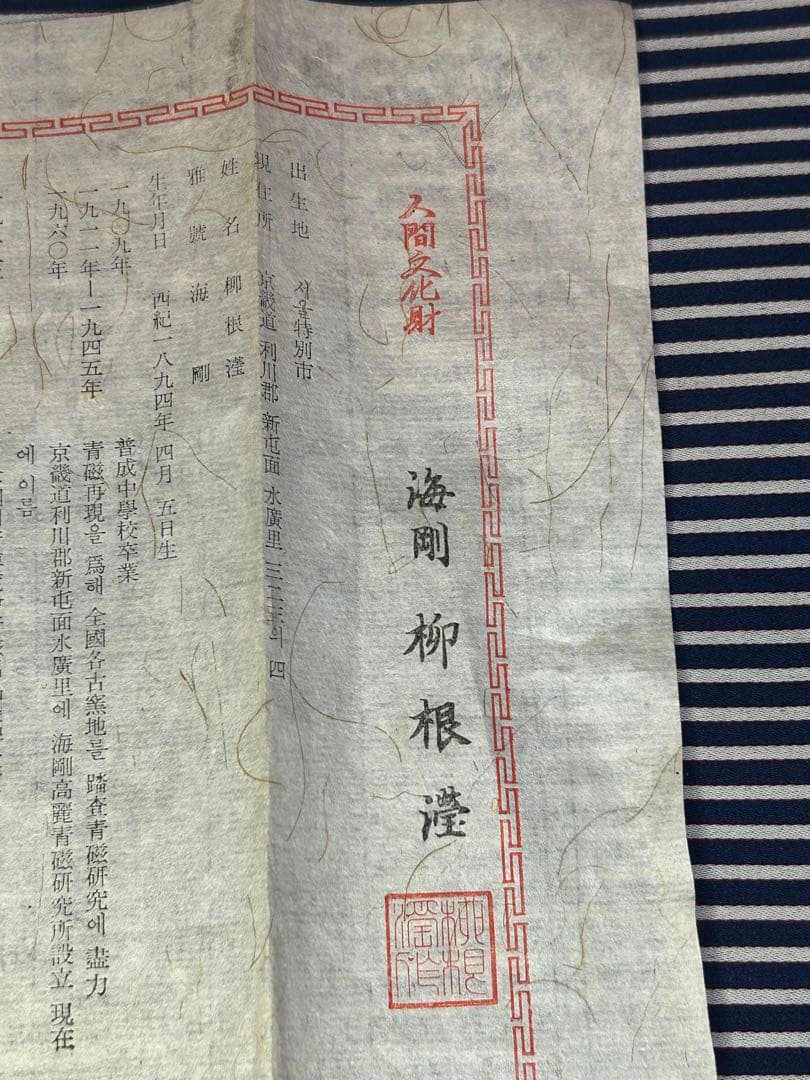 人間文化財
海剛 柳根瀅
柳根瀅印
出生地 서울特別市
現住所 京畿道 利川郡 新屯面 水廣里 三二三의 四
姓名 柳根瀅
雅號 海剛
生年月日 西紀一八九四年 四月 五日生
一九〇九年 普成中學校卒業
一九一一年—一九四五年 青磁再現을 爲해 全國各古窯地를 踏査青磁硏究에 盡力
一九六〇年 京畿道利川郡新屯面水廣里에 海剛高麗青磁硏究所設立 現在
에 이름